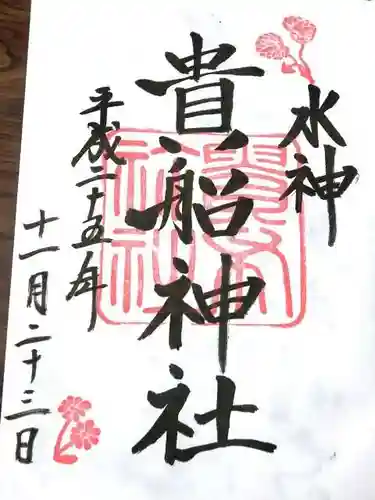 水神
貴船神社
平成二十五年
十一月二十三日